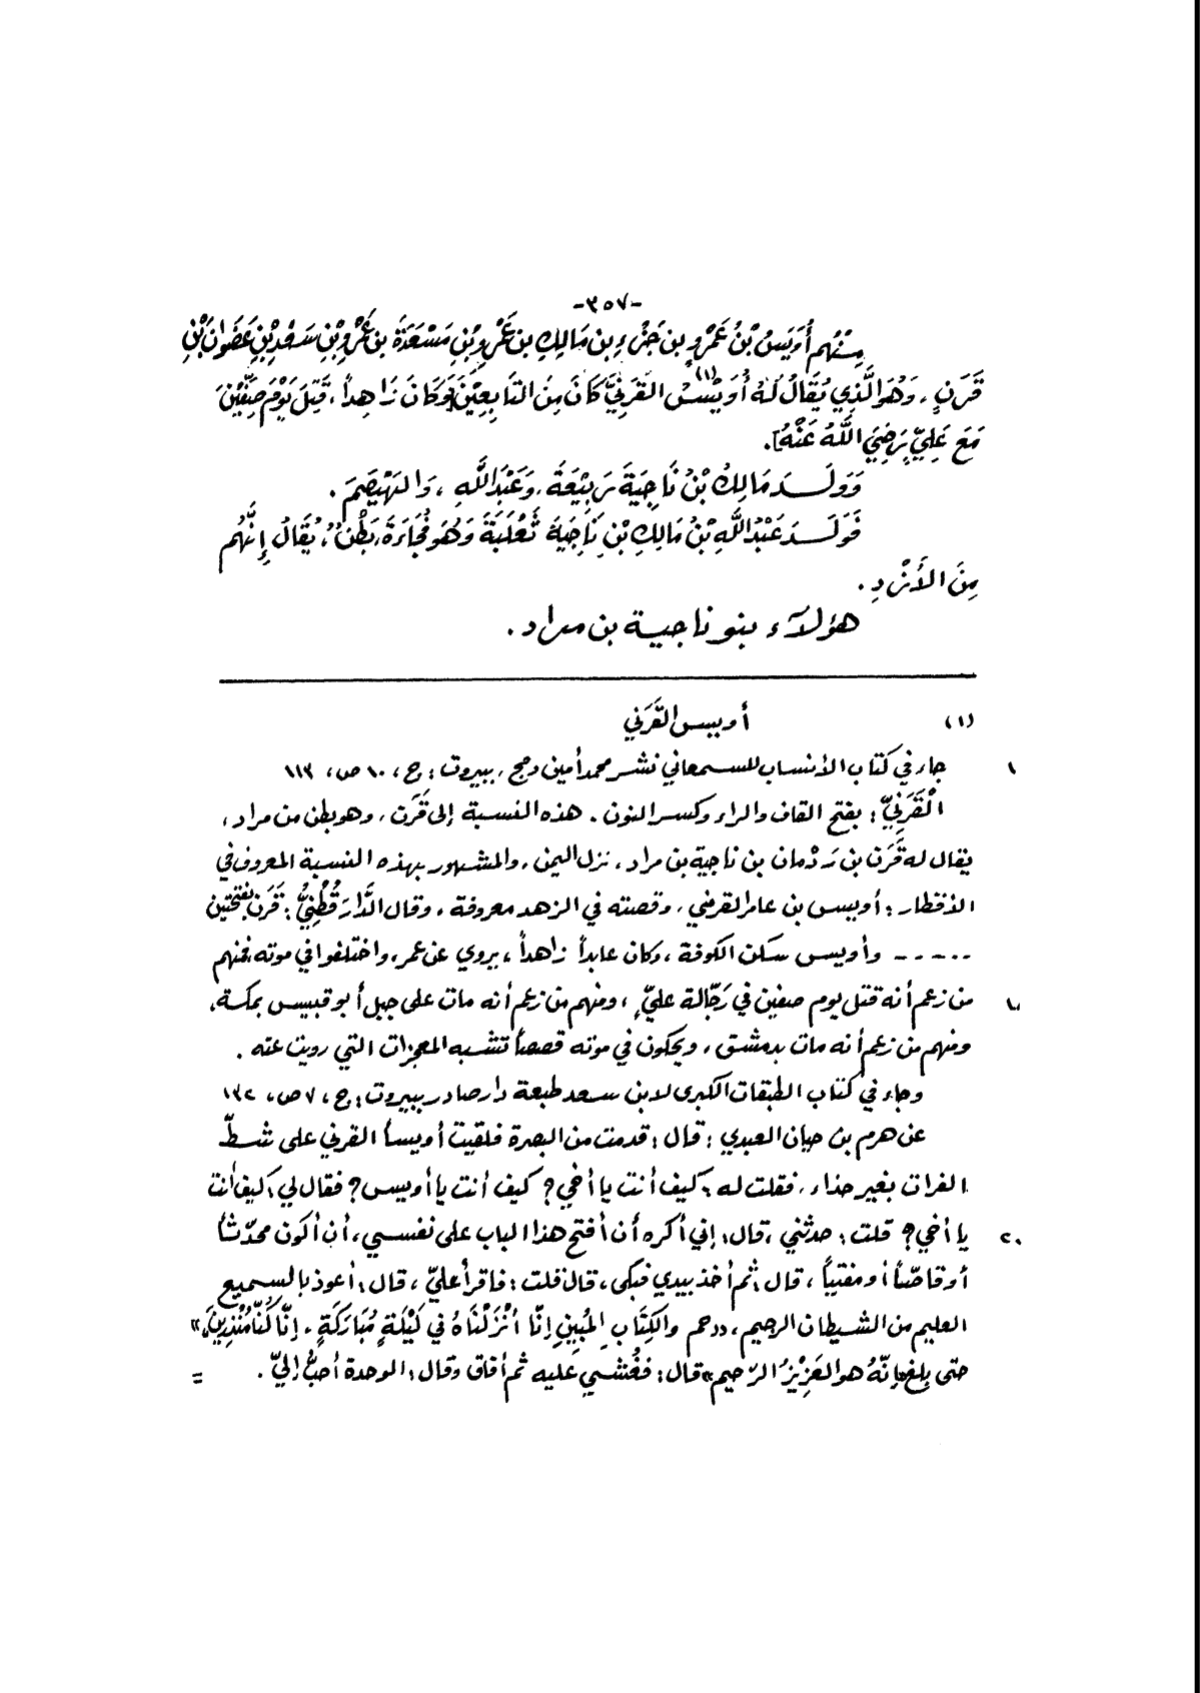 -٣٥٧-
مِنْهُم أُوَيْسُ بْنُ عَمْرِو بن جَزْءِ بن مَالِكِ بن عَمْرِو بْنِ مَسْعَدَةَ بن عَمْرِو بْنِ سَعْدِ بْنِ عَصَوَانَ بْنِ
قَرَنٍ، وَهُوَ الَّذِي يُقَالُ لَهُ أُوَيْسٌ القَرَنِيُّ (١) كَانَ مِنَ التَّابِعِيْنَ [وَكَانَ زَاهِداً، قُتِلَ يَوْمَ صِفِّيْنَ
مَعَ عَلِيٍّ رَضِيَ اللَّهُ عَنْهُ].
وَوَلَدَ مَالِكُ بْنُ نَاجِيَةَ رَبِيْعَةَ، وَعَبْدَ اللَّهِ، وَالهَيْصَمَ.
فَوَلَدَ عَبْدُ اللَّهِ بْنُ مَالِكِ بْنِ نَاجِيَةَ ثَعْلَبَةَ وَهُوَ فُجَاءَةَ، بَطْنٌ، يُقَالُ إِنَّهُم
مِنَ الأَزْدِ.
هؤلآء بنو ناجية بن مراد.
(١) أويس القَرَني
١ جاء في كتاب الأنساب للسمعاني نشر محمد أمين دمج، ببيروت: ج، ١٠ ص، ١١٣
الْقَرَنِيُّ: بفتح القاف والراء وكسر النون. هذه النسبة إلى قَرَن، وهو بطن من مراد،
يقال له قَرَن بن رَدْمان بن ناجية بن مراد، نزل اليمن، والمشهور بهذه النسبة المعروف في
الأقطار: أويس بن عامر القرني، وقصته في الزهد معروفة، وقال الدَّارَقُطْنِيُّ: قَرَن بفتحتين
----- وأويس سكن الكوفة، وكان عابداً زاهداً، يروي عن عمر، واختلفوا في موته فمنهم
١٠ من زعم أنه قتل يوم صفين في رَجّالة عليٍّ، ومنهم من زعم أنه مات على جبل أبو قبيس بمكة،
ومنهم من زعم أنه مات بدمشق، ويحكون في موته قصصاً تشبه المعجزات التي رويت عنه.
وجاء في كتاب الطبقات الكبرى لابن سعد طبعة دار صادر ببيروت: ج، ٧ ص، ١٣٢
عن هرم بن حيان العبدي: قال: قدمت من البصرة فلقيت أويساً القرني على شطّ
الفرات بغير حذاء، فقلت له: كيف أنت يا أخي؟ كيف أنت يا أويس؟ فقال لي: كيف أنت
٢٠ يا أخي؟ قلت: حدثني، قال: إني أكره أن أفتح هذا الباب على نفسي، أن أكون محدّثاً
أو قاصّاً أو مفتياً، قال: ثم أخذ بيدي فبكى، قال: قلت: فاقرأ عليّ، قال: أعوذ بالسميع
العليم من الشيطان الرجيم، ((حم والكِتَابِ المُبِينِ إِنَّا أنْزَلْنَاهُ في لَيْلَةٍ مُبَارَكَةٍ، إِنَّا كُنَّا مُنْذِرِينَ،))
حتى بلغ ((إِنّهُ هو العَزِيْزُ الرّحيم)) قال: فغُشي عليه ثم أفاق وقال: الوحدة أحبُّ إليّ. =